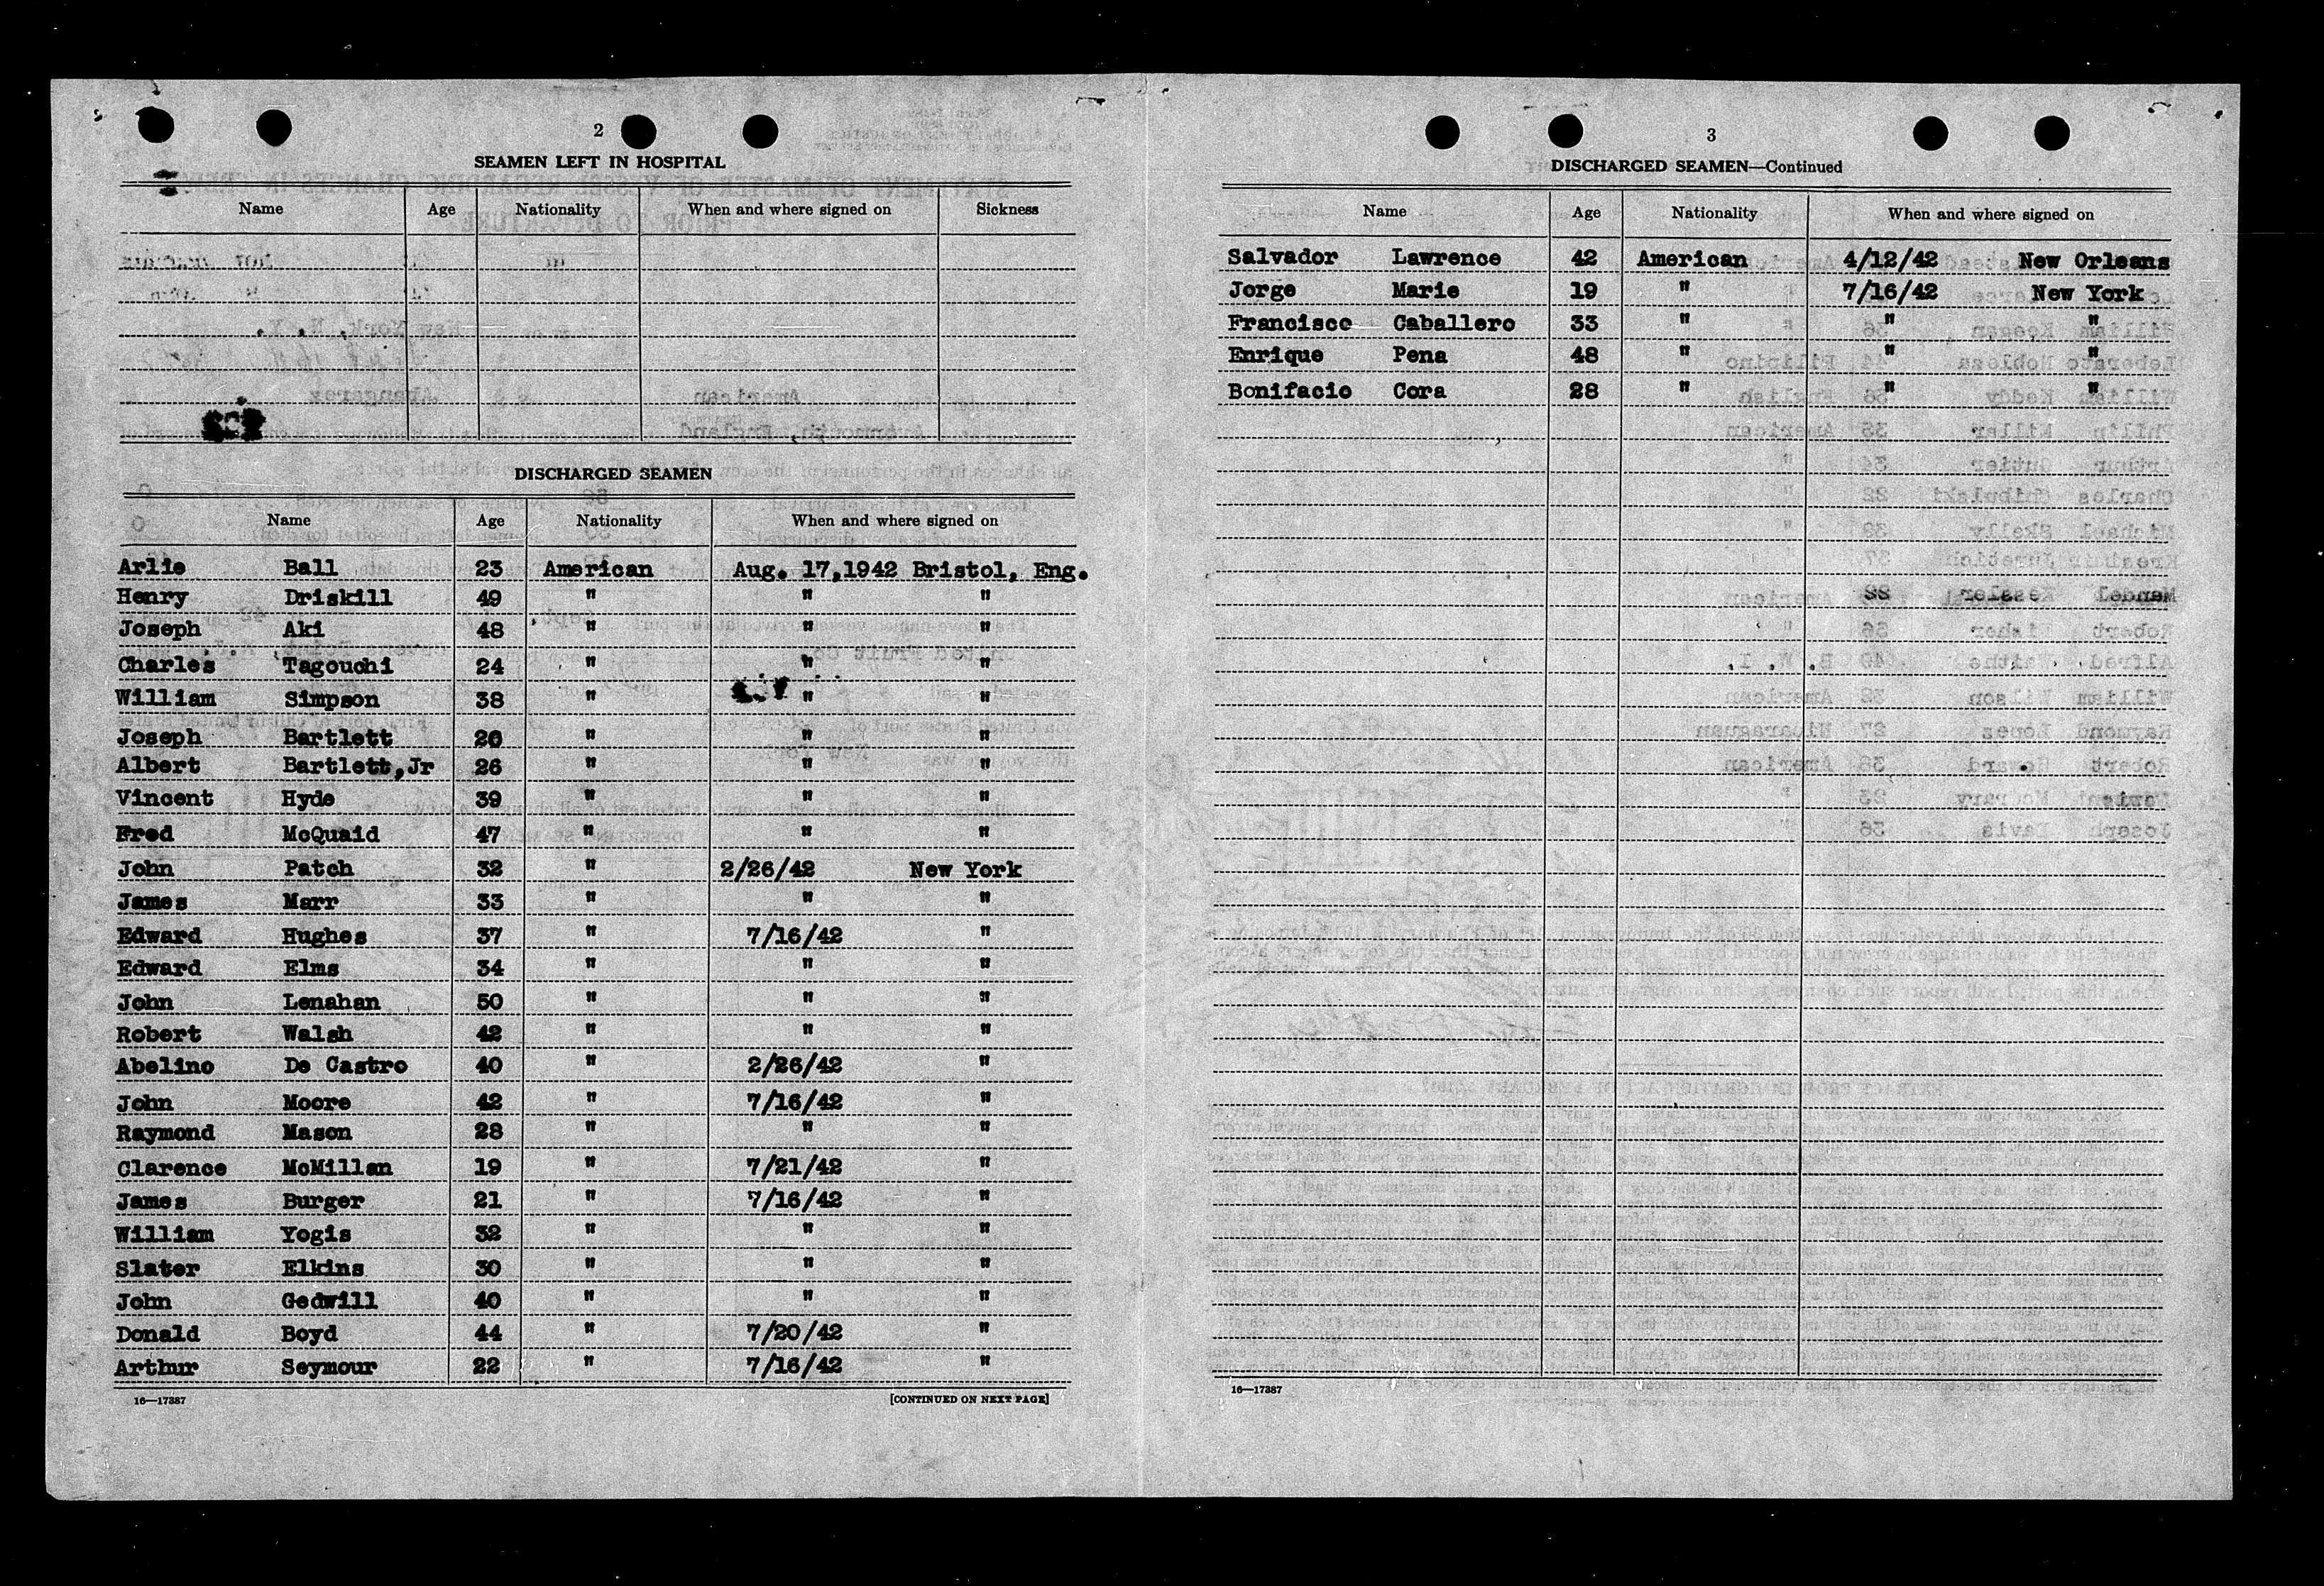 2
SEAMEN LEFT IN HOSPITAL
Name Age Nationality When and where signed on Sickness
DISCHARGED SEAMEN
Name Age Nationality When and where signed on
Arlie Ball 23 American Aug. 17,1942 Bristol, Eng.
Henry Driskill 49 " " "
Joseph Aki 48 " " "
Charles Tagouchi 24 " " "
William Simpson 38 " " "
Joseph Bartlett 20 " " "
Albert Bartlett,Jr 26 " " "
Vincent Hyde 39 " " "
Fred McQuaid 47 " " "
John Patch 32 " 2/26/42 New York
James Marr 33 " " "
Edward Hughes 37 " 7/16/42 "
Edward Elms 34 " " "
John Lenahan 50 " " "
Robert Walsh 42 " " "
Abelino De Castro 40 " 2/26/42 "
John Moore 42 " 7/16/42 "
Raymond Mason 28 " " "
Clarence McMillan 19 " 7/21/42 "
James Burger 21 " 7/16/42 "
William Yogis 32 " " "
Slater Elkins 30 " " "
John Gedwill 40 " " "
Donald Boyd 44 " 7/20/42 "
Arthur Seymour 22 " 7/16/42 "
16—17387 [CONTINUED ON NEXT PAGE]
3
DISCHARGED SEAMEN—Continued
Name Age Nationality When and where signed on
Salvador Lawrence 42 American 4/12/42 New Orleans
Jorge Marie 19 " 7/16/42 New York
Francisco Caballero 33 " " "
Enrique Pena 48 " " "
Bonifacio Cora 28 " " "
16—17387